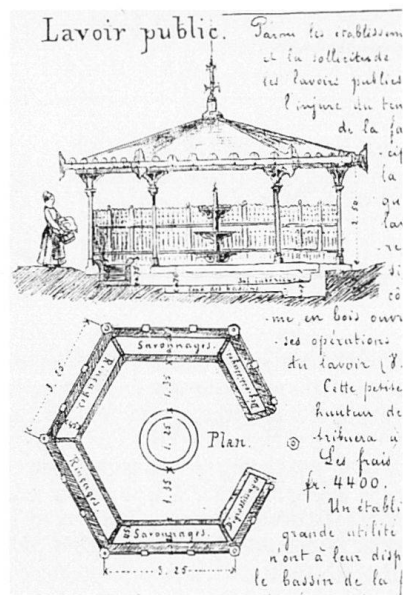 Lavoir public.
Parmi les établissem
et la sollicitude
les lavoirs publics
l'injure du ten
de la fa
cip
la
qu
lav
re
si
cô
2.50.
Sol intérieur
me, en bois ouvr
ses opérations
du lavoir (8.
Cette petite
hauteur de
tribuera à
Les frais
fr. 4400.
Un établi
grande utilité
n'ont à leur disp
le bassin de la f
Savonnages.
Rinçages
Rinçages
Savonnages.
Dégrossissages
Dégrossissages
Plan.
3.25
1.35
1.25
1.35
3.25